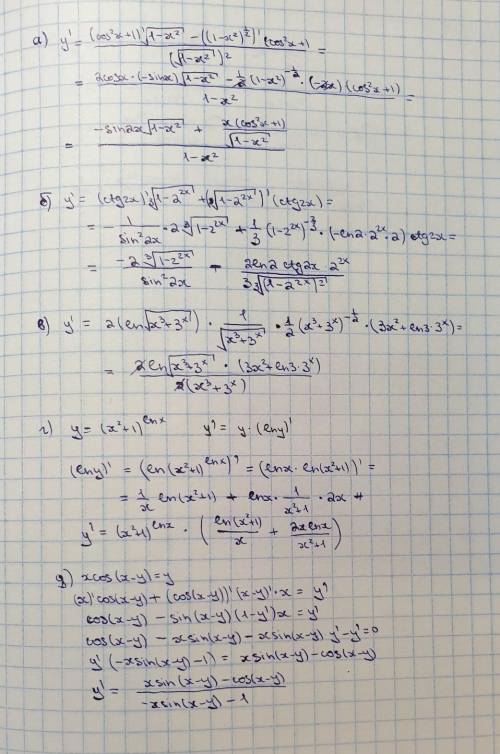 а) y' = ((cos²x+1)'√(1-x²) - ((1-x²)^(1/2))' (cos²x+1))/(√(1-x²))² =
= (2cosx·(-sinx)√(1-x²) - 1/2 (1-x²)^(-1/2) · (-2x)(cos²x+1))/(1-x²) =
= (-sin2x√(1-x²) + x(cos²x+1)/√(1-x²))/(1-x²)
б) y' = (ctg2x)' ∛(1-2^(2x)) + (∛(1-2^(2x)))' (ctg2x) =
= - 1/sin²2x · 2 ∛(1-2^(2x)) + 1/3 (1-2^(2x))^(-2/3) · (-ln2·2^(2x)·2) ctg2x =
= -2∛(1-2^(2x))/sin²2x - 2ln2 ctg2x·2^(2x)/(3∛((1-2^(2x))²))
в) y' = 2(ln√(x³+3^x)) · 1/√(x³+3^x) · 1/2 (x³+3^x)^(-1/2) · (3x²+ln3·3^x) =
= 2ln√(x³+3^x) · (3x²+ln3·3^x)/(2(x³+3^x))
г) y = (x²+1)^(lnx) y' = y·(lny)'
(lny)' = (ln(x²+1)^(lnx))' = (lnx·ln(x²+1))' =
= 1/x ln(x²+1) + lnx · 1/(x²+1) · 2x
y' = (x²+1)^(lnx) · (ln(x²+1)/x + 2xlnx/(x²+1))
д) xcos(x-y)=y
(x)'cos(x-y) + (cos(x-y))'(x-y)'·x = y'
cos(x-y) - sin(x-y)(1-y')x = y'
cos(x-y) - xsin(x-y) - xsin(x-y) y'-y'=0
y'(-xsin(x-y)-1) = xsin(x-y)-cos(x-y)
y' = (xsin(x-y)-cos(x-y))/(-xsin(x-y)-1)